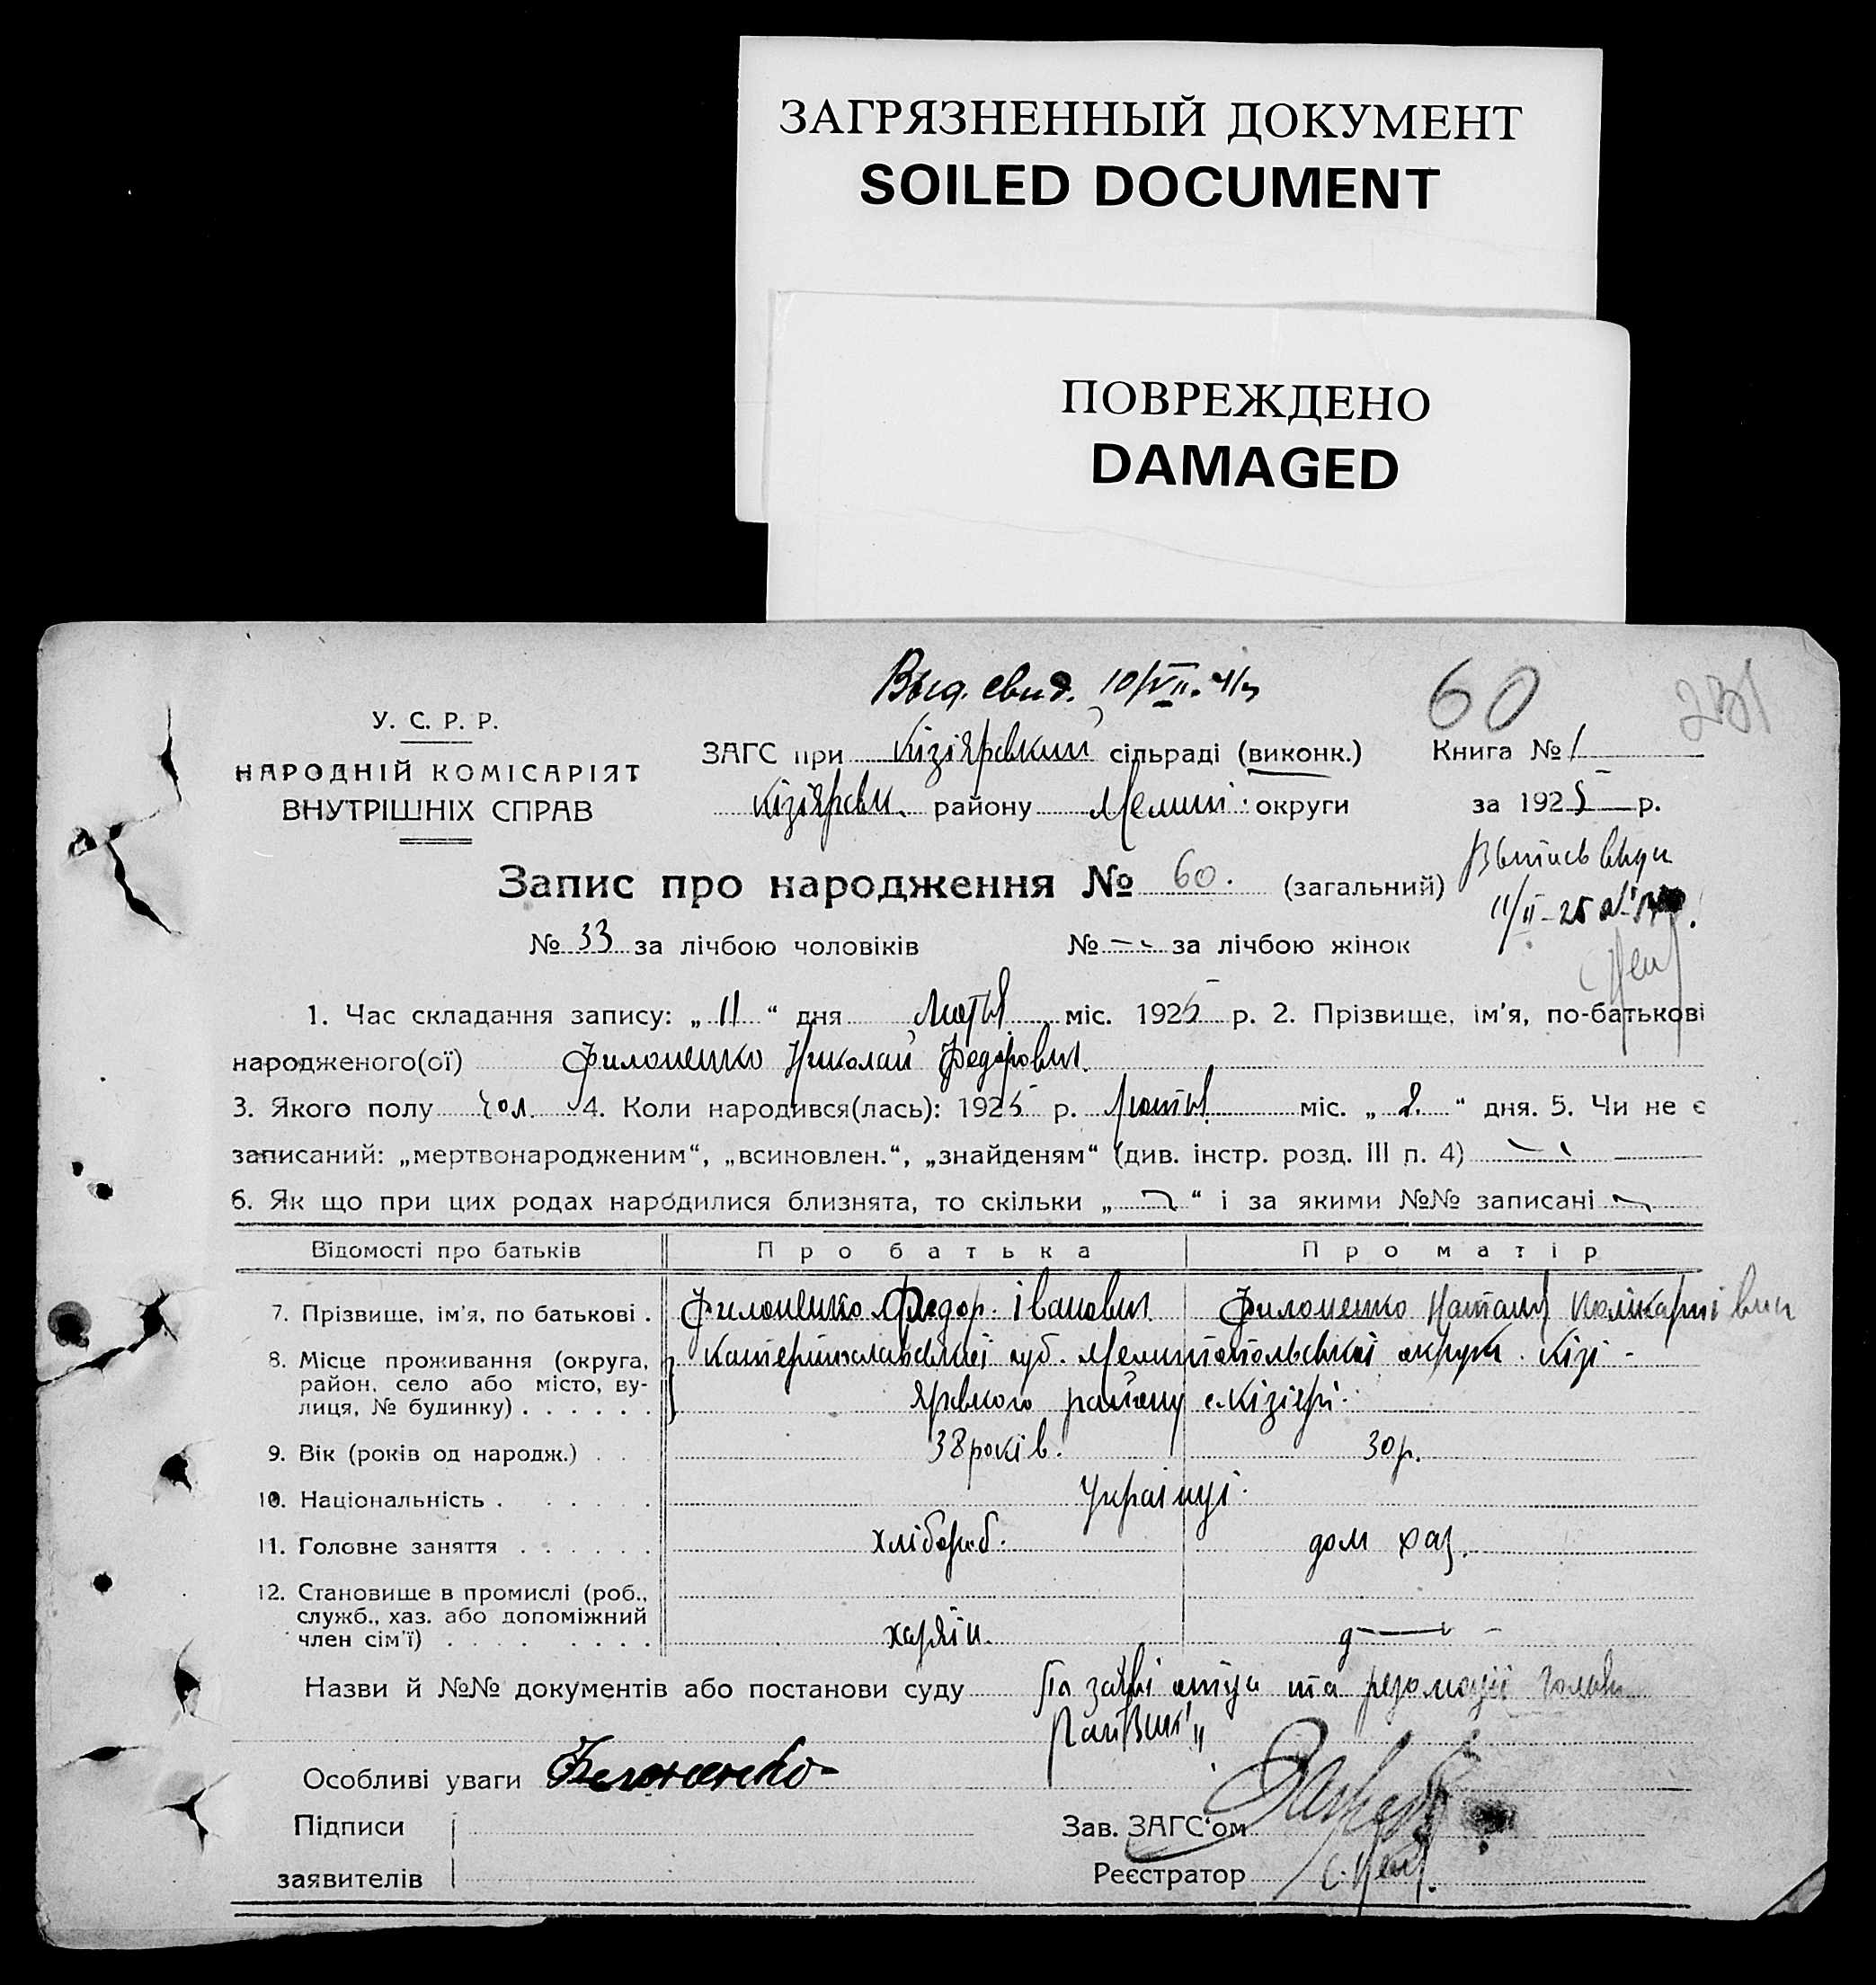 ЗАГРЯЗНЕННЫЙ ДОКУМЕНТ
SOILED DOCUMENT
ПОВРЕЖДЕНО
DAMAGED
Выд. свид. 10/VII
60 231
У. С. Р. Р.
НАРОДНІЙ КОМІСАРІЯТ
ВНУТРІШНІХ СПРАВ
ЗАГС при Кізіярський сільраді (виконк.) Книга № 1
Кізіярськ. району Мелит. округи за 1925 р.
Запис про народження № 60. (загальний)
Выпись
11/II-25
№ 33 за лічбою чоловіків № — за лічбою жінок
1. Час складання запису: „ 11 “ дня Лютня міс. 1925 р. 2. Прізвище, ім'я, по-батькові
народженого(ої) Филоненко Николай Федорович.
3. Якого полу чол. 4. Коли народився(лась): 1925 р. Лютня міс. „ 2. “ дня. 5. Чи не є
записаний: „мертвонародженим“, „всиновлен.“, „знайденям“ (див. інстр. розд. III п. 4) —
6. Як що при цих родах народилися близнята, то скільки „ — “ і за якими №№ записані —
Відомості про батьків Про батька Про матір
7. Прізвище, ім'я, по батькові . Филоненко Федор. Іванович. Филоненко Наталя Полікарпівни
8. Місце проживання (округа, район, село або місто, вулиця, № будинку) . . . . . . Катеринославської губ. Мелитопольської округи. Кізі-
ярського району с. Кізіярі.
9. Вік (років од народж.) . . . 38 років. 30 р.
10. Національність . . . . . . Українці.
11. Головне заняття . . . . . . хлібороб. дом хаз.
12. Становище в промислі (роб.,
служб., хаз. або допоміжний
член сім'ї) . . . . . . . . хазяїн. д—
Назви й №№ документів або постанови суду По заяві отця та резолюції голови
Райвик
Особливі уваги Филоненко
Підписи
заявителів
Зав. ЗАГС'ом
Реєстратор